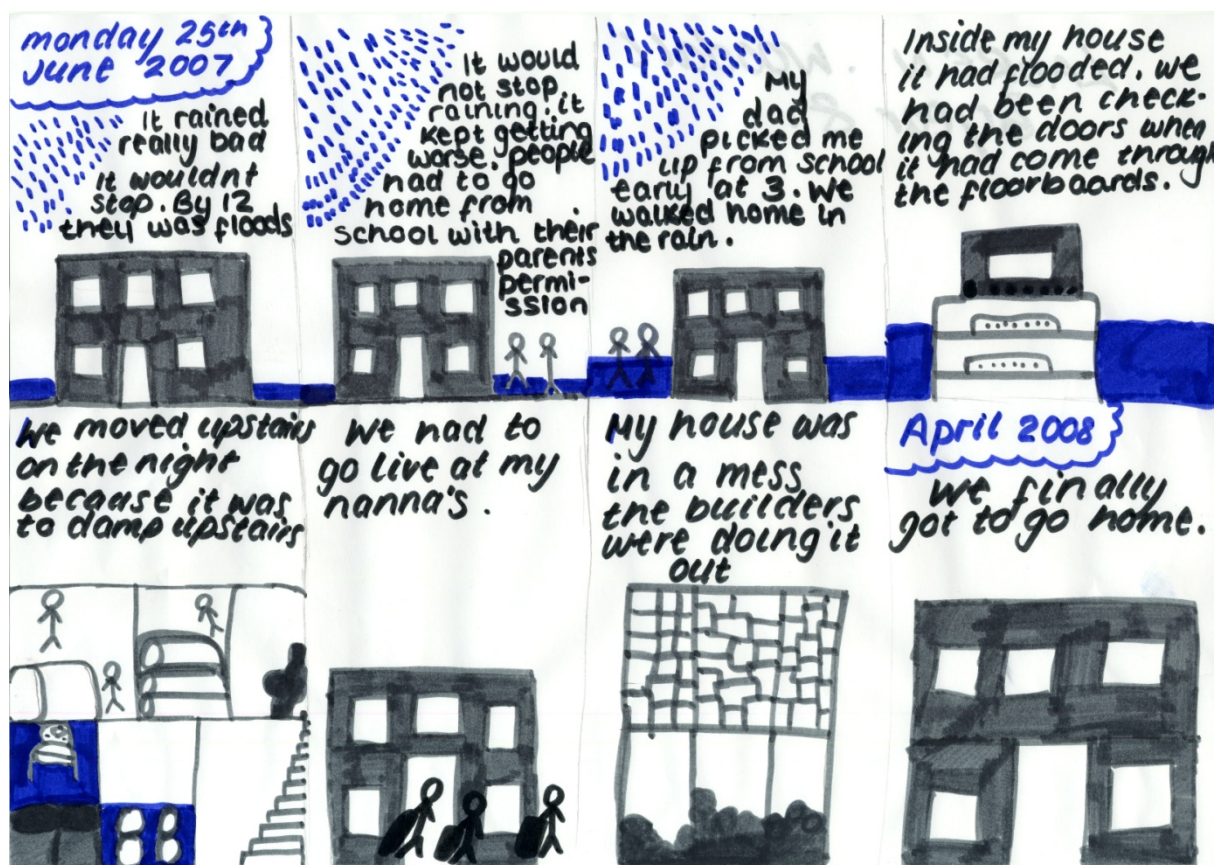 monday 25th
June 2007
It rained
really bad
It wouldnt
stop. By 12
they was floods
It would
not stop
raining it
kept getting
worse. people
had to go
home from
school with their
parents
permi-
ssion
My
dad
picked me
up from school
early at 3. We
walked home in
the rain.
Inside my house
it had flooded. we
had been check-
ing the doors when
it had come through
the floorboards.
We moved upstairs
on the night
because it was
to damp upstairs
We had to
go live at my
nanna's.
My house was
in a mess
the builders
were doing it
out
April 2008
We finally
got to go home.